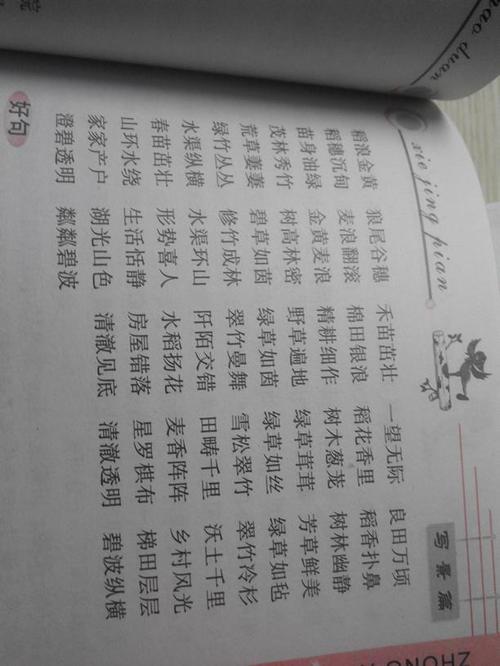 duan
xie jing pian
写景篇
稻浪金黄 狼尾谷穗 禾苗茁壮 一望无际 良田万顷
稻穗沉甸 麦浪翻滚 棉田银浪 稻花香里 稻香扑鼻
苗身油绿 金黄麦浪 精耕细作 树木葱茏 树林幽静
茂林秀竹 树高林密 野草遍地 绿草茸茸 芳草鲜美
荒草萋萋 碧草如茵 绿草如茵 绿草如丝 绿草如毡
绿竹丛丛 修竹成林 翠竹曼舞 雪松翠竹 翠竹冷杉
水渠纵横 水渠环山 阡陌交错 田畴千里 沃土千里
春苗茁壮 形势喜人 水稻扬花 麦香阵阵 乡村风光
山环水绕 生活恬静 房屋错落 星罗棋布 梯田层层
家家户户 湖光山色 清澈见底 清澈透明 碧波纵横
澄碧透明 粼粼碧波
好句